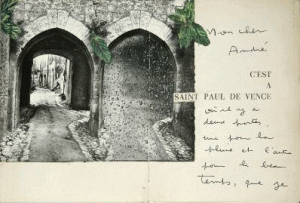 Mon cher
André
C'EST
A
SAINT PAUL DE VENCE
où il y a
deux portes,
une pour la
pluie et l'autre
pour le beau
temps, que je